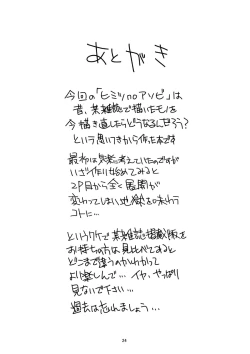 あとがき
今回の「ヒミツnoアソビ」は
昔、某雑誌で描いたモノを
今描き直したらどうなるんだろう?
という思いつきから作った本です
最初は気楽に考えていたのですが
いざ作り始めてみると
2P目から全く展開が
変わってしまい地獄を味わう
コトに…
というワケで某雑誌掲載版を
お持ちの方は見比べてみると
どこまで違うのかわかって
より楽しんで…イヤ、やっぱり
見ないで下さい…
過去は忘れましょう…
24